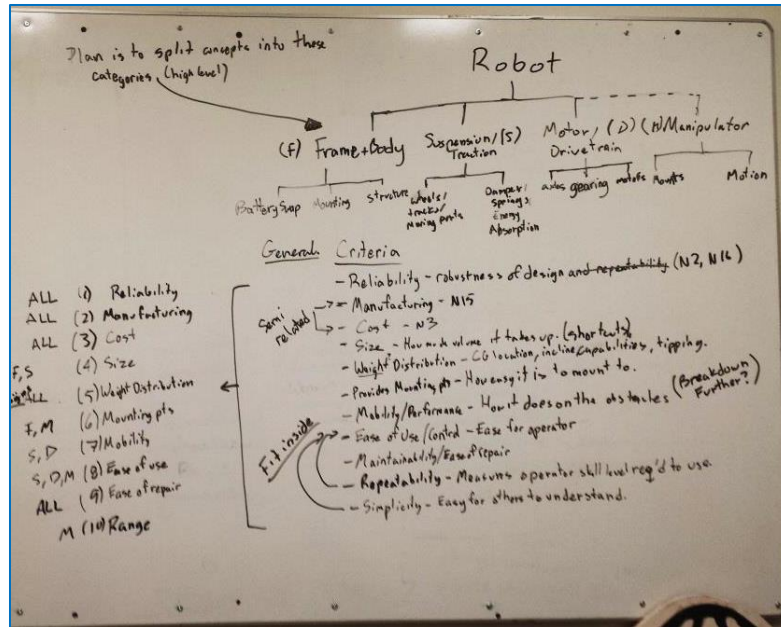 Plan is to split concepts into these
categories (high level)
Robot
(F) Frame+Body
Suspension/(S)
Traction
Motor/(D)
Drivetrain
(M) Manipulator
Battery Swap
Mounting
Structure
wheels/
tracks/
Moving parts
Damper/
springs
Energy
Absorption
axles
gearing
motors
Mounts
Motion
General Criteria
- Reliability - robustness of design and repeatability (N2, N16)
- Manufacturing - N15
- Cost - N3
Semi
related
- Size - How much volume it takes up. (shortcuts)
- Weight Distribution - CG location, incline capabilities, tipping.
- Provides Mounting pts - How easy it is to mount to.
- Mobility/Performance - How it does on the obstacles (Breakdown
Further?)
- Ease of Use/Control - Ease for operator
- Maintainability/Ease of repair
- Repeatability - Measures operator skill level req'd to use.
- Simplicity - Easy for others to understand.
Fit inside
ALL (1) Reliability
ALL (2) Manufacturing
ALL (3) Cost
F, S (4) Size
ALL (5) Weight Distribution
F, M (6) Mounting pts
S, D (7) Mobility
S, D, M (8) Ease of use
ALL (9) Ease of repair
M (10) Range